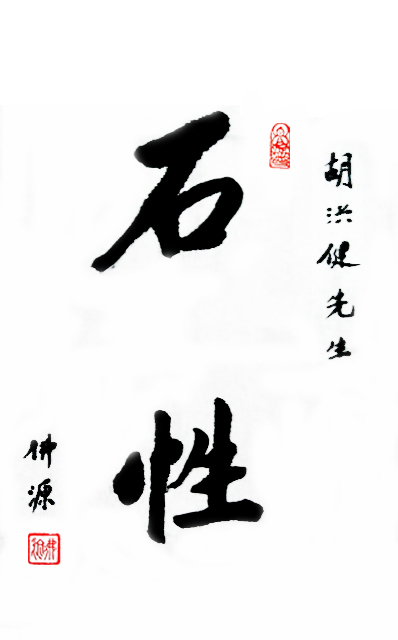 胡洪健先生
石性
佛源